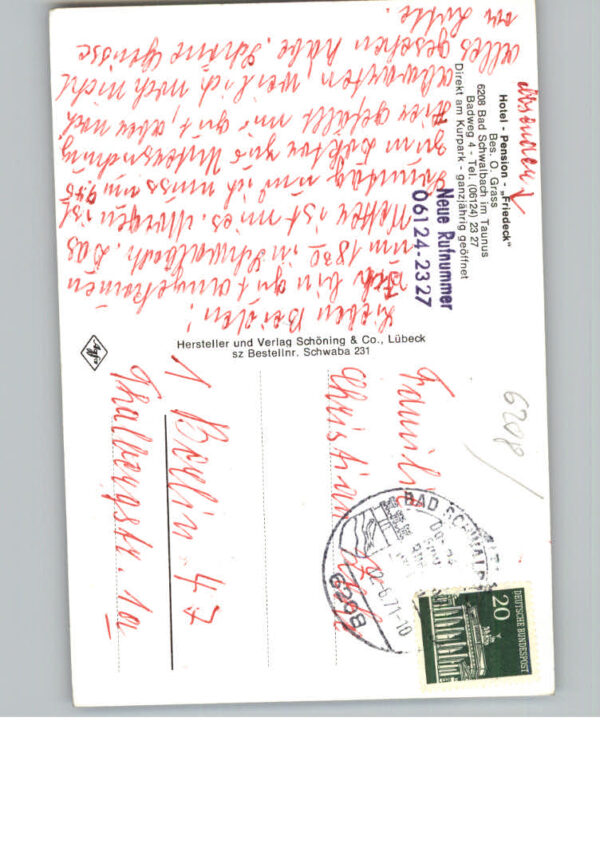 absender ↓
Hotel - Pension - „Friedeck"
Bes. O. Grass
6208 Bad Schwalbach im Taunus
Badweg 4 - Tel. (06124) 23 27
Direkt am Kurpark - ganzjährig geöffnet
Neue Rufnummer
06124-2327
Lieben Beiden!
Ich bin gut angekommen
um 18³⁰ in Schwalbach. Das
Wetter ist mies. Morgen ist
Sonntag und ich muss um 9.45
zum Doktor zur Untersuchung
Hier gefällt mir gut, aber noch
abwarten, weil ich noch nicht
alles gesehen habe. Schöne Grüsse
von
Hersteller und Verlag Schöning & Co., Lübeck
sz Bestellnr. Schwaba 231
Agfa
6208
BAD SCHWALBACH
-6.71-10
6208
20
DEUTSCHE BUNDESPOST
Familie
Christian
1 Berlin 47
Thalbergstr. 1a